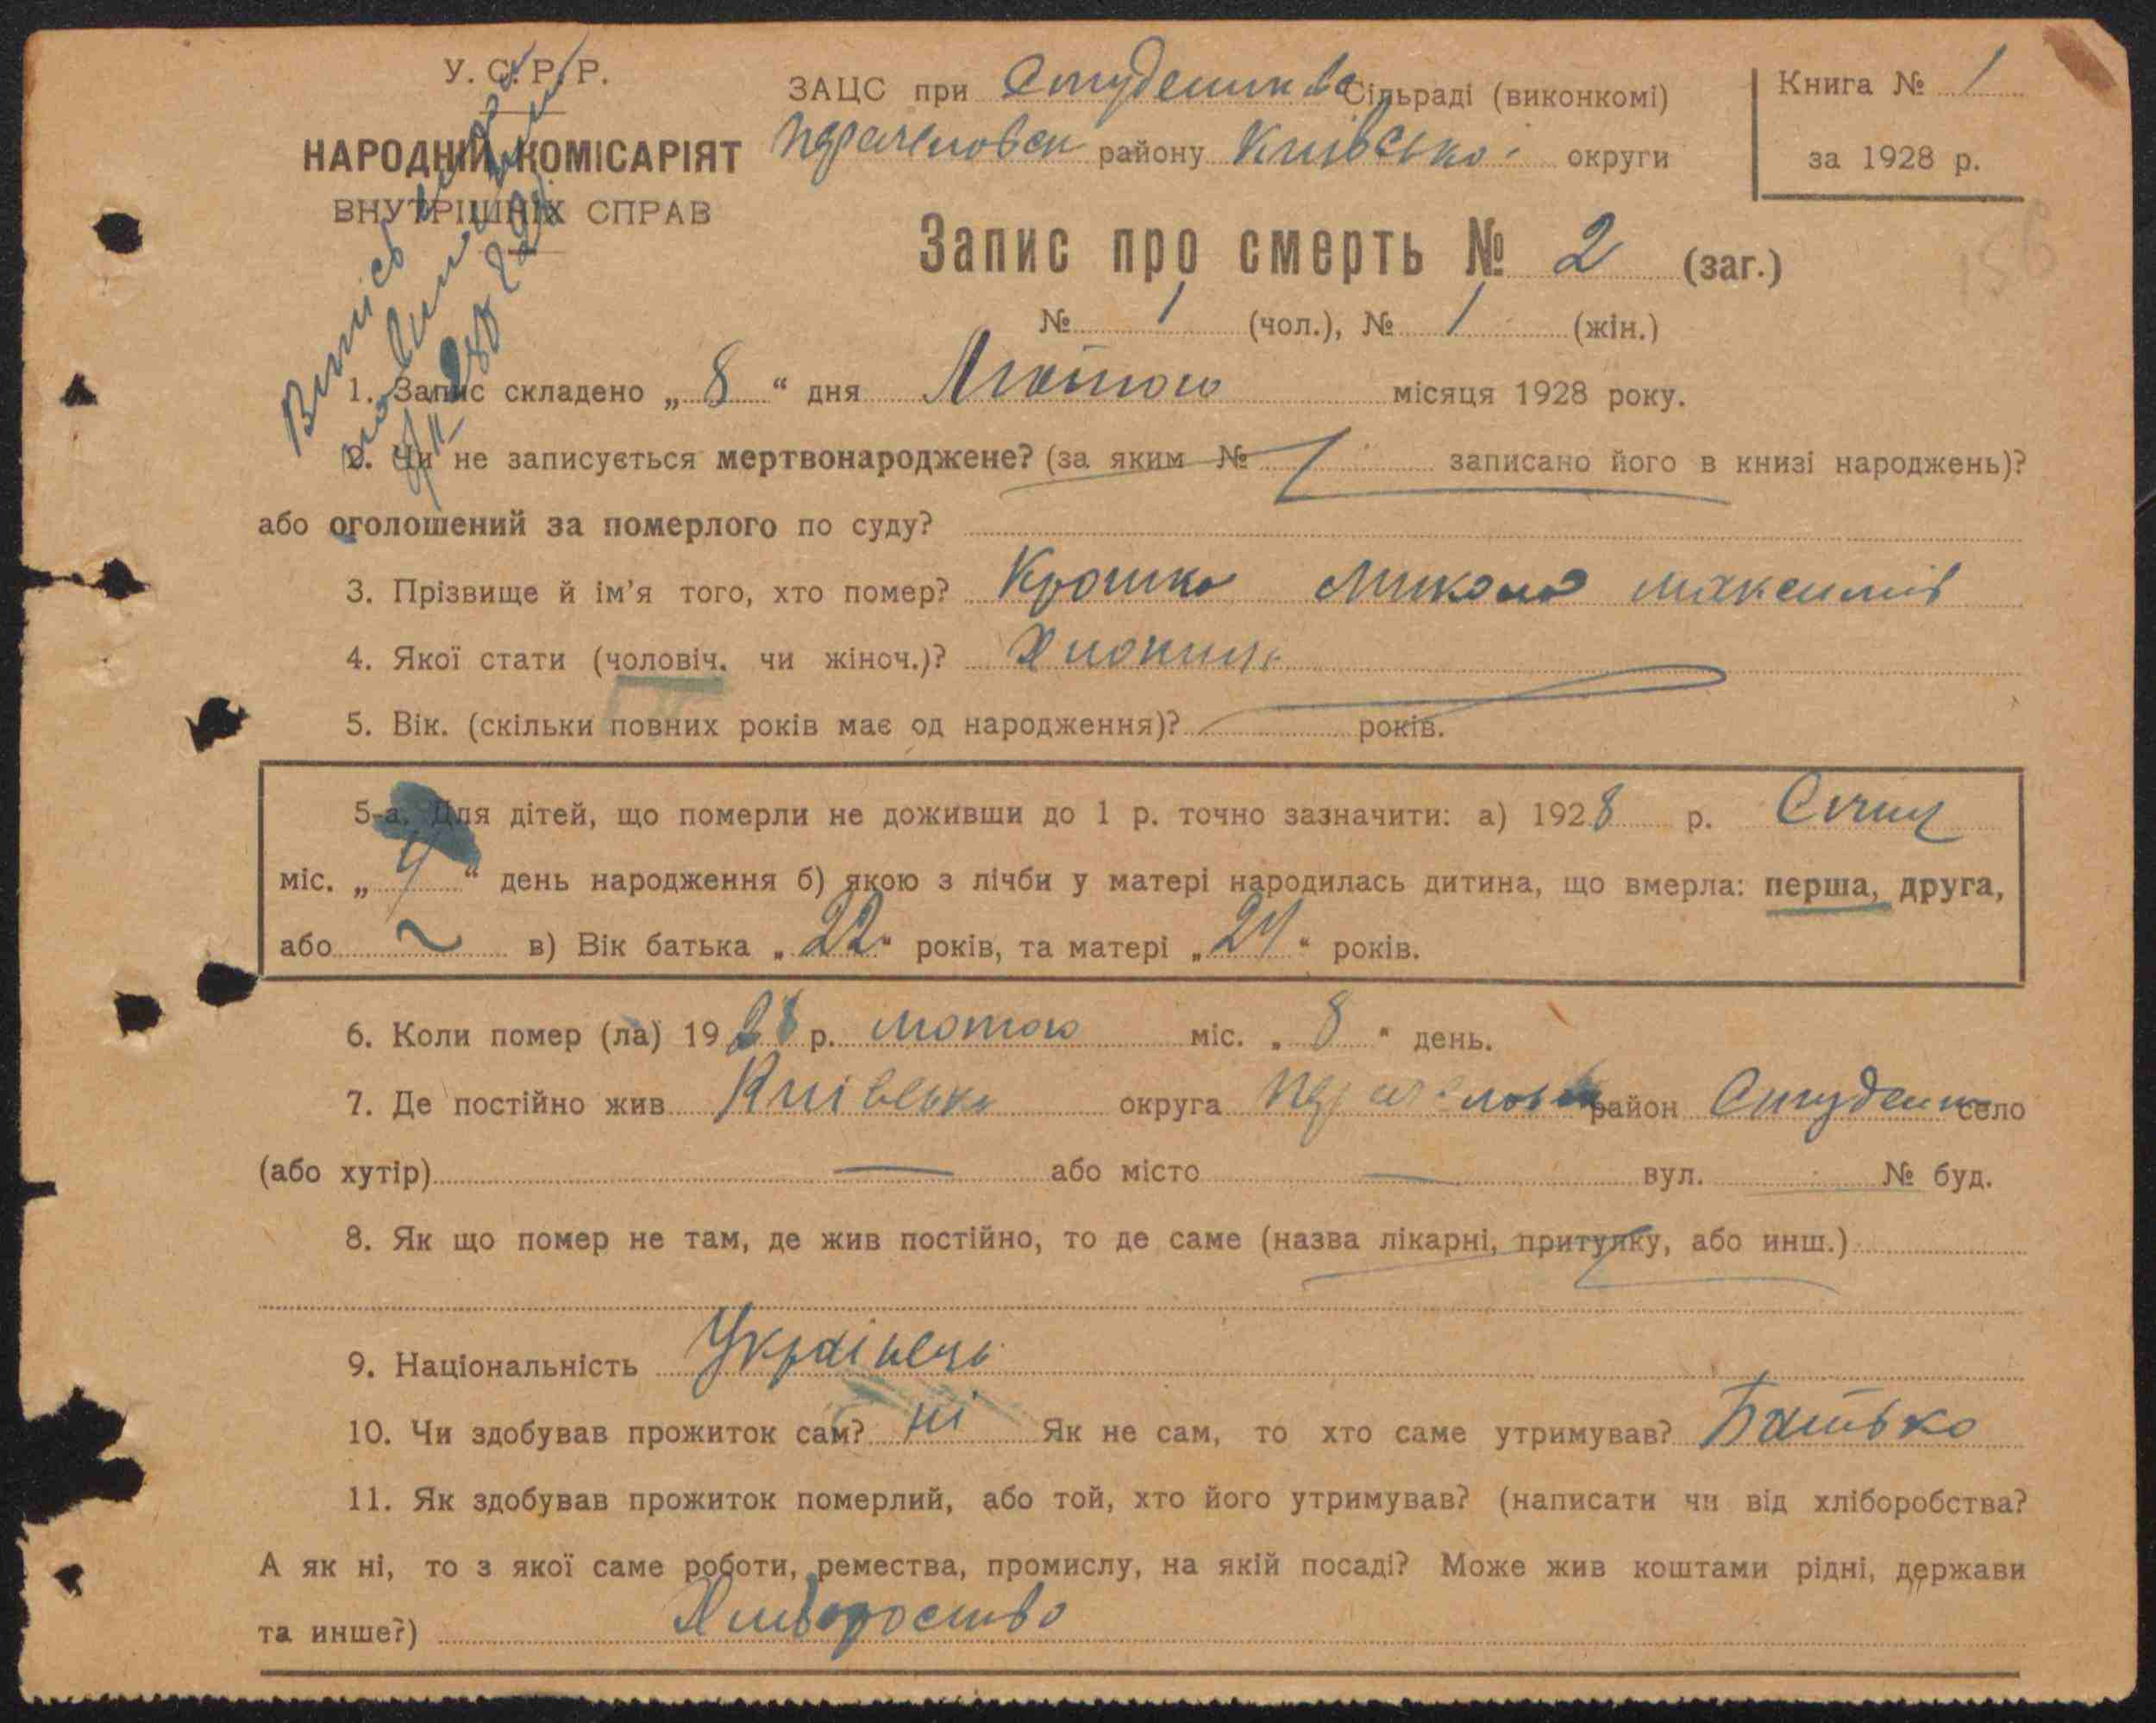 У. С. Р. Р.
НАРОДНІЙ КОМІСАРІЯТ
ВНУТРІШНІХ СПРАВ
ЗАЦС при Сільраді (виконкомі)
району Київської округи
Книга № 1
за 1928 р.
Запис про смерть № 2 (заг.)
№ 1 (чол.), № 1 (жін.)
1. Запис складено „ 8 “ дня Лютого місяця 1928 року.
2. Чи не записується мертвонароджене? (за яким № записано його в книзі народжень)?
або оголошений за померлого по суду?
3. Прізвище й ім’я того, хто помер? Крошка Микола Максимів
4. Якої стати (чоловіч. чи жіноч.)? Хлопчик
5. Вік. (скільки повних років має од народження)? років.
5-а. Для дітей, що померли не доживши до 1 р. точно зазначити: а) 1928 р. Січня
міс. „ “ день народження б) якою з лічби у матері народилась дитина, що вмерла: перша, друга,
або в) Вік батька „ 22 “ років, та матері „ “ років.
6. Коли помер (ла) 1928 р. лютого міс. „ 8 “ день.
7. Де постійно жив Київська округа район село
(або хутір) — або місто — вул. № буд.
8. Як що помер не там, де жив постійно, то де саме (назва лікарні, притулку, або инш.)
9. Національність Українець
10. Чи здобував прожиток сам? ні Як не сам, то хто саме утримував? Батько
11. Як здобував прожиток померлий, або той, хто його утримував? (написати чи від хліборобства?
А як ні, то з якої саме роботи, ремества, промислу, на якій посаді? Може жив коштами рідні, держави
та инше?)